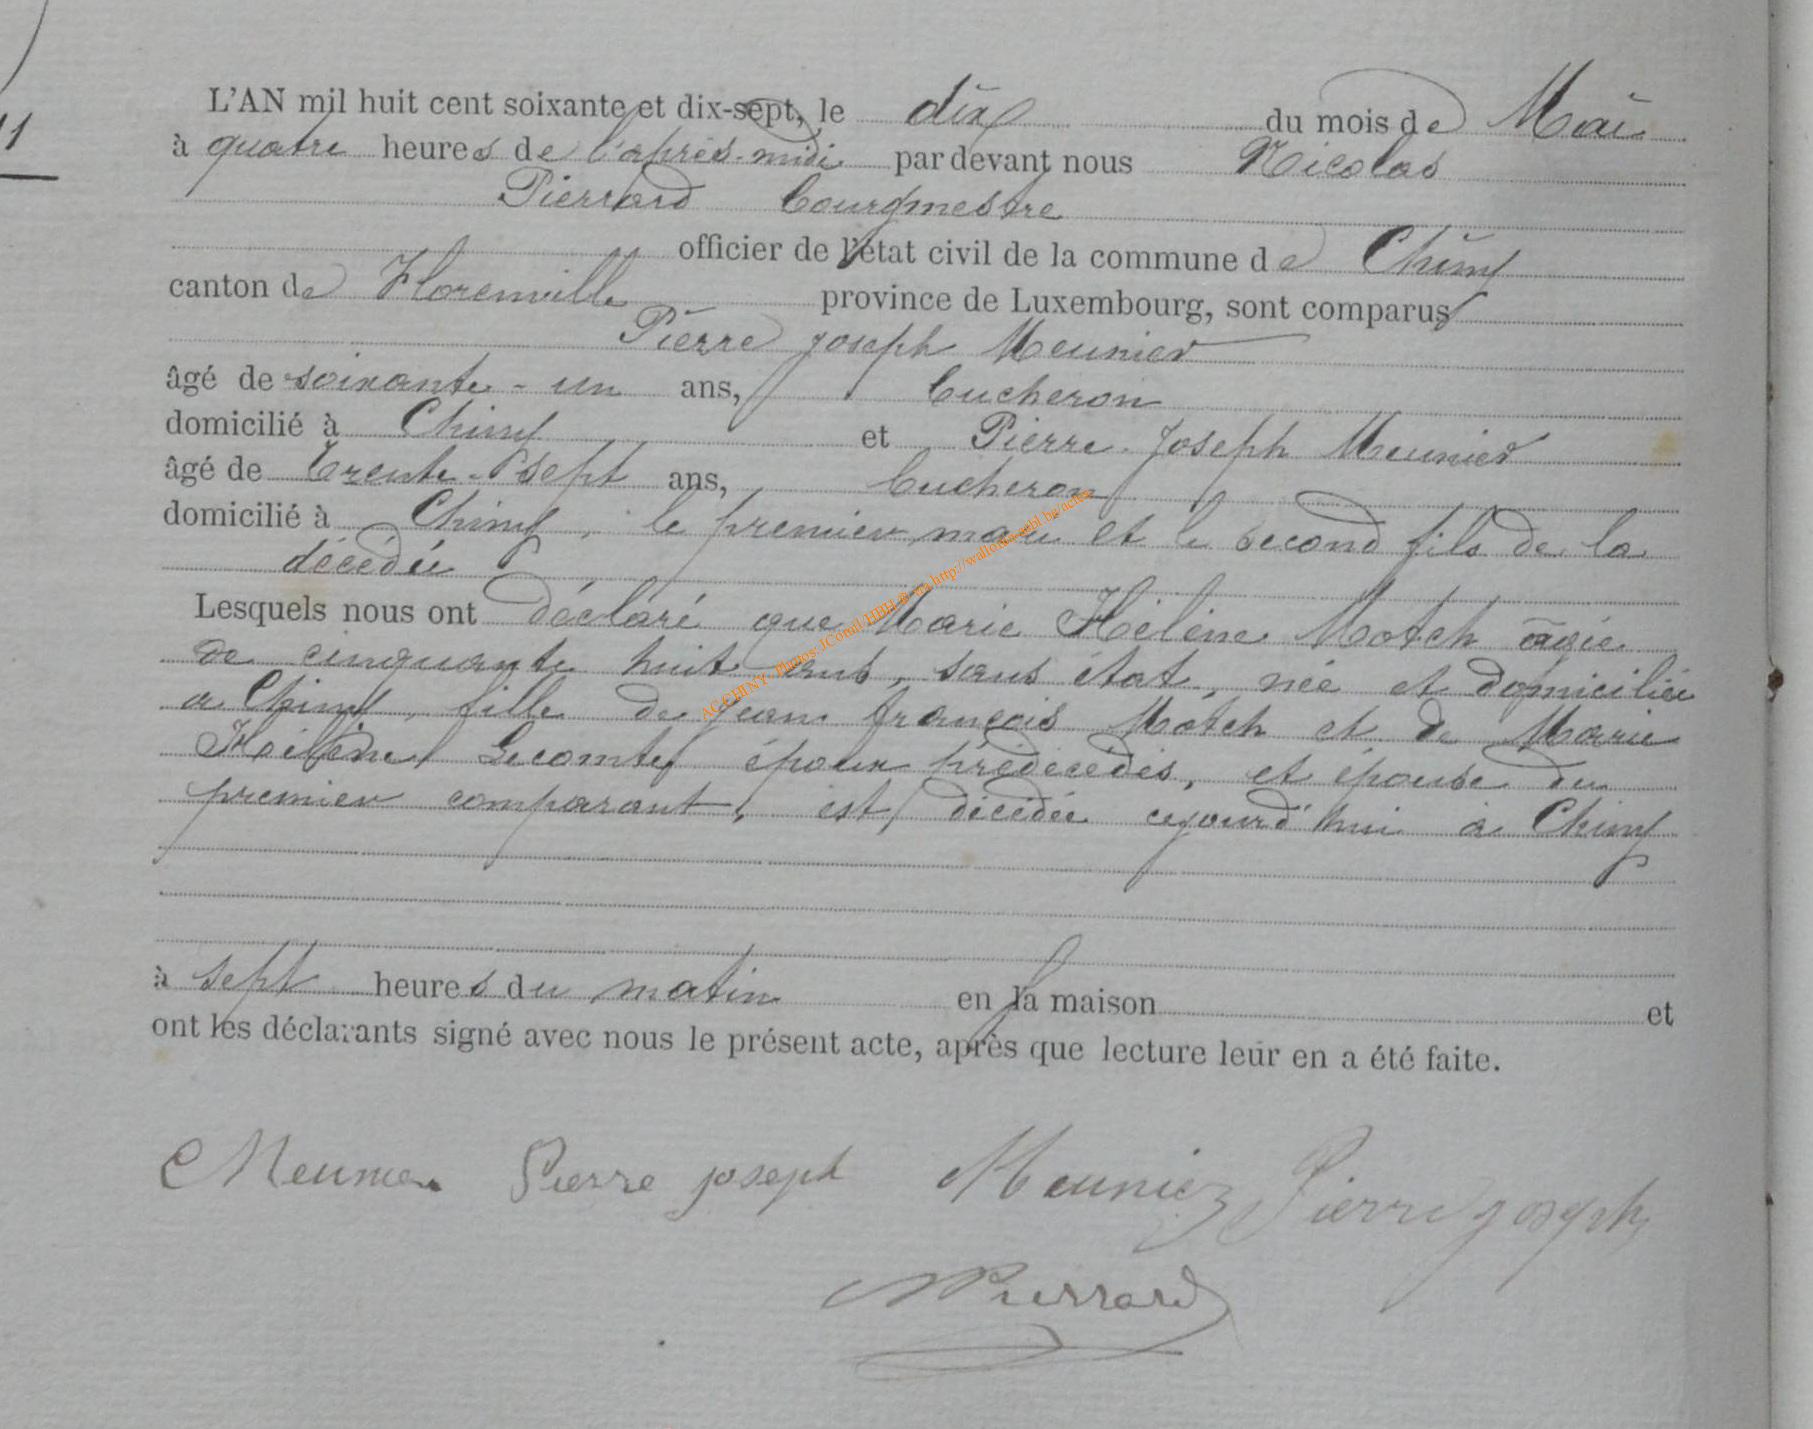 11
L'AN mil huit cent soixante et dix-sept, le dix du mois de Mai
à quatre heures de l'après-midi par devant nous Nicolas
Pierrard bourgmestre
officier de l'état civil de la commune de Chiny
canton de Florenville province de Luxembourg, sont comparus
Pierre Joseph Meunier
âgé de soixante-un ans, bucheron
domicilié à Chiny et Pierre-Joseph Meunier
âgé de trente-sept ans, bucheron
domicilié à Chiny, le premier mari et le second fils de la
décédée
Lesquels nous ont déclaré que Marie Hélène Motch âgée
de cinquante huit ans, sans état, née et domiciliée
a Chiny, fille de jean françois Motch et de Marie
Hélène Lecomte, époux prédécédés, et épouse du
premier comparant, est décédée cejourd'hui à Chiny
à sept heures du matin en la maison et
ont les déclarants signé avec nous le présent acte, après que lecture leur en a été faite.
Meunier Pierre joseph Meunier Pierre joseph
NPierrard